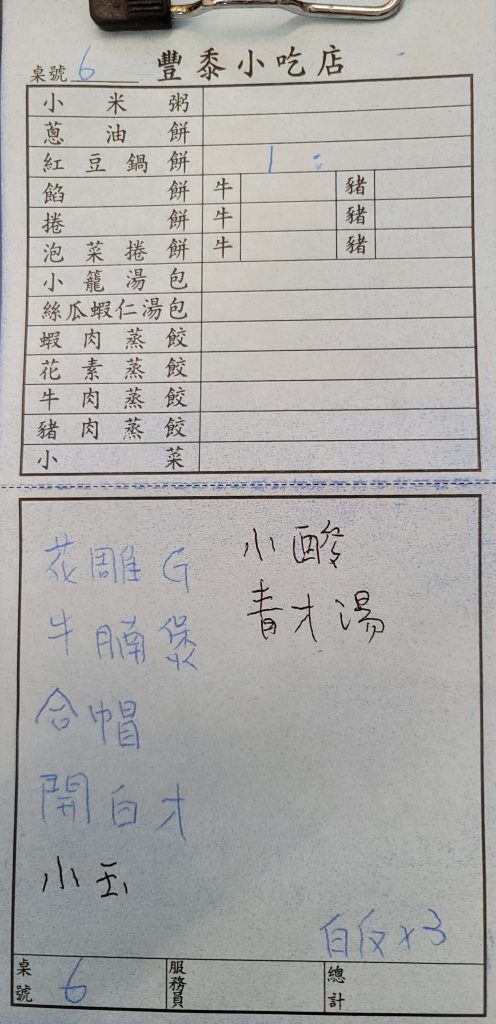 桌號 6 豐黍小吃店
小米粥
蔥油餅
紅豆鍋餅 1
餡餅 牛 豬
捲餅 牛 豬
泡菜捲餅 牛 豬
小籠湯包
絲瓜蝦仁湯包
蝦肉蒸餃
花素蒸餃
牛肉蒸餃
豬肉蒸餃
小菜
花雕G
牛腩煲
合帽
開白才
小玉
小酸
青才湯
白反x3
桌號 6 服務員 總計